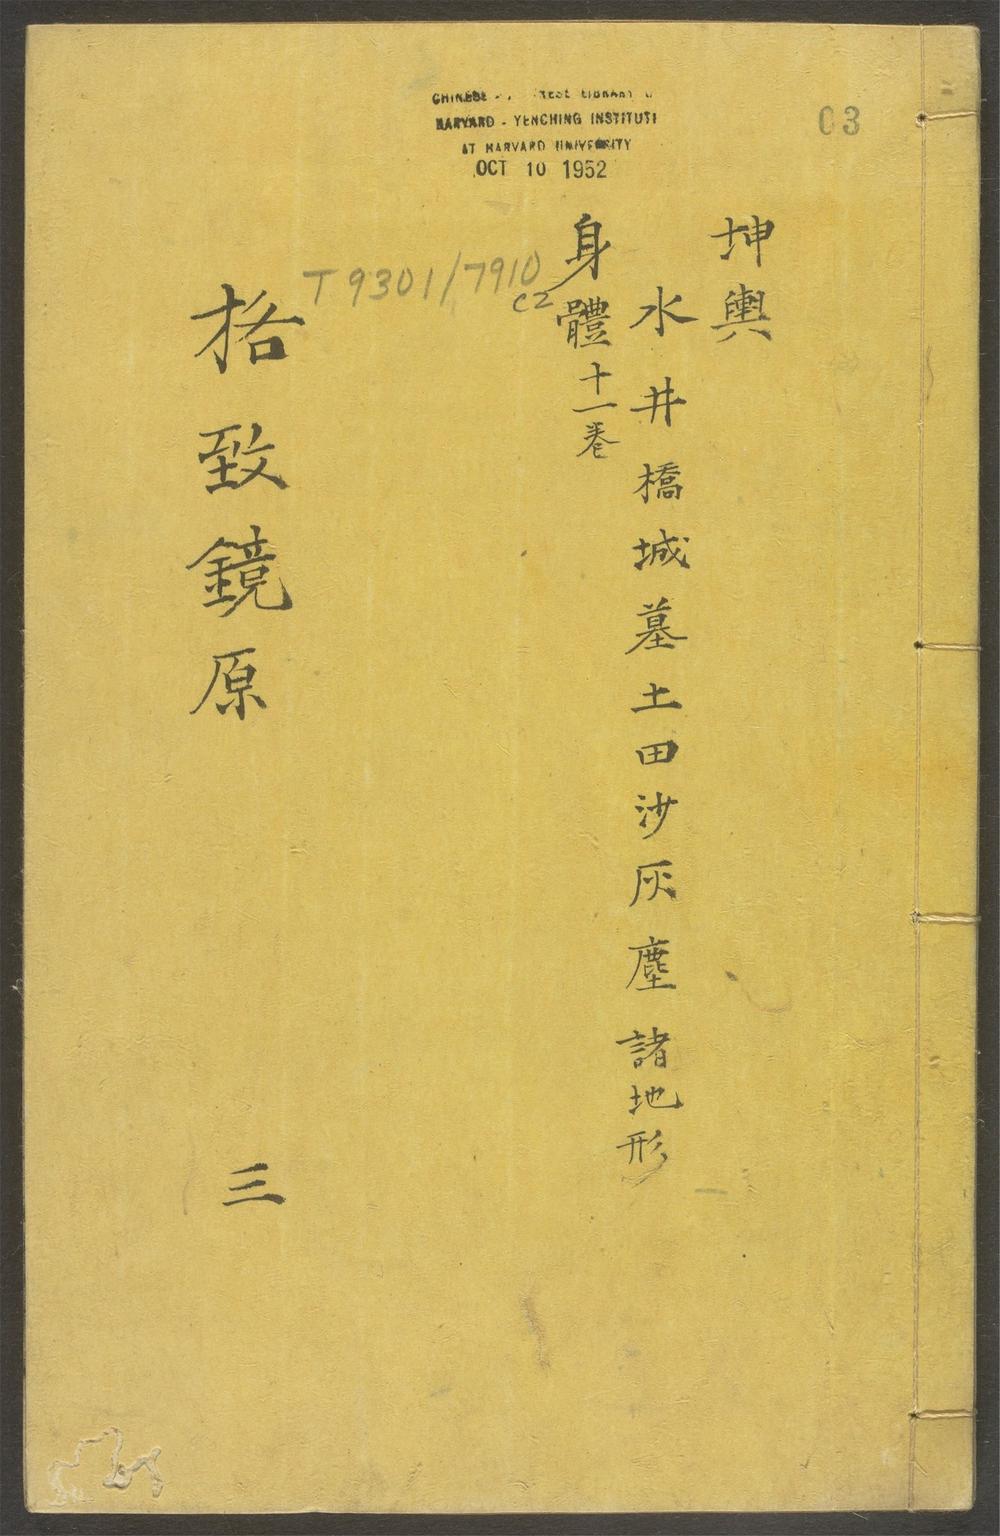 CHINESE LIBRARY
HARVARD - YENCHING INSTITUTE
AT HARVARD UNIVERSITY
OCT 10 1952
03
坤輿
水井橋城墓土田沙灰塵諸地形
身體十一卷
T9301/7910
C2
格致鏡原
三